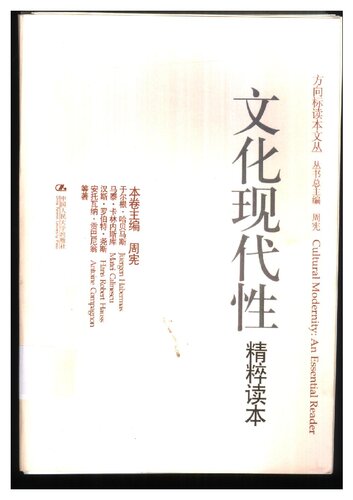 方向标读本文丛 丛书总主编 周宪 Cultural Modernity: An Essential Reader
文化现代性 精粹读本
本卷主编 周宪
于尔根·哈贝马斯 Juergen Habermas
马泰·卡林内斯库 Matei Calinescu
汉斯·罗伯特·尧斯 Hans Robert Hauss
安托瓦纳·贡巴尼翁 Antoine Compagnon
等著
中国人民大学出版社